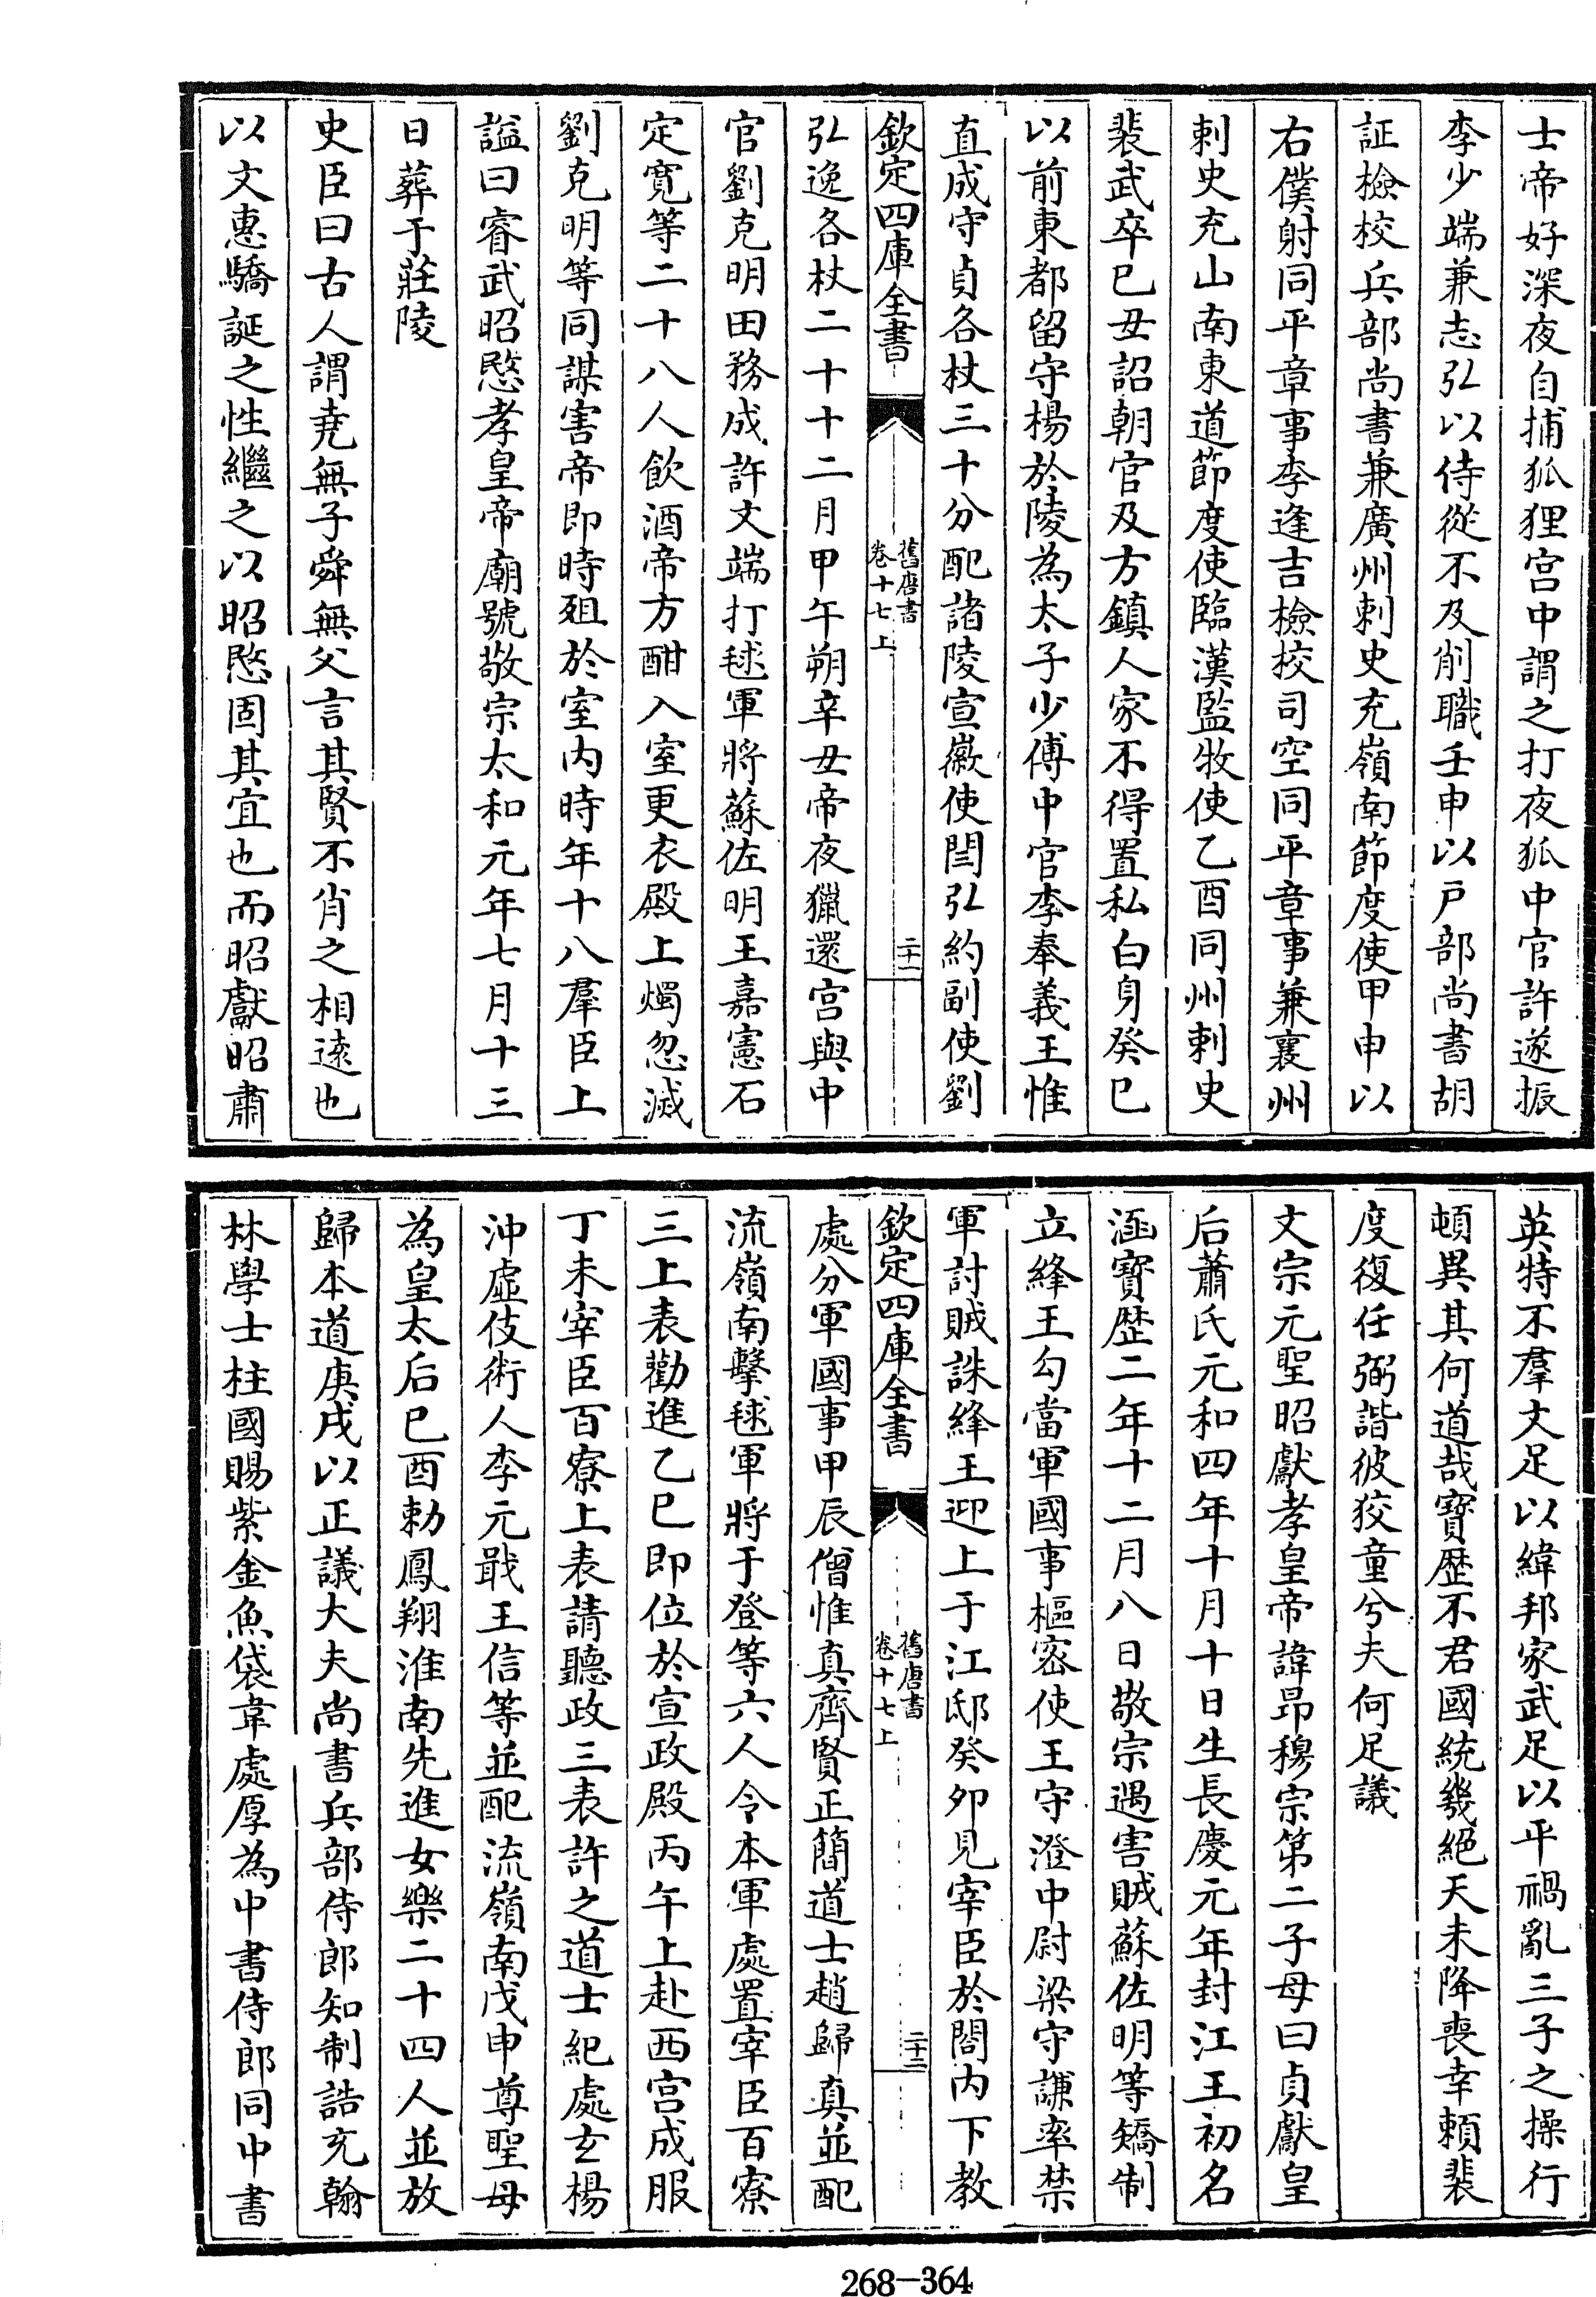 士帝好深夜自捕狐狸宫中謂之打夜狐中官許遂振
李少端兼志弘以侍從不及削職壬申以戸部尚書胡
証檢校兵部尚書兼廣州刺史充嶺南節度使甲申以
右僕射同平章事李逢吉檢校司空同平章事兼襄州
刺史充山南東道節度使臨漢監牧使乙酉同州刺史
裴武卒已丑詔朝官及方鎮人家不得置私白身癸巳
以前東都留守楊於陵為太子少傅中官李奉義王惟
直成守貞各杖三十分配諸陵宣徽使閆弘約副使劉
欽定四庫全書
舊唐書
卷十七上
二十一
弘逸各杖二十十二月甲午朔辛丑帝夜獵還宫與中
官劉克明田務成許文端打毬軍將蘇佐明王嘉憲石
定寛等二十八人飲酒帝方酣入室更衣殿上燭忽滅
劉克明等同謀害帝即時殂於室内時年十八羣臣上
諡曰睿武昭愍孝皇帝廟號敬宗太和元年七月十三
日葬于莊陵
史臣曰古人謂堯無子舜無父言其賢不肖之相逺也
以文惠驕誕之性繼之以昭愍固其宜也而昭獻昭肅
英特不羣文足以緯邦家武足以平禍亂三子之操行
頓異其何道哉寳歴不君國統幾絶天未降喪幸頼裴
度復任弼諧彼狡童兮夫何足議
文宗元聖昭獻孝皇帝諱昂穆宗第二子母曰貞獻皇
后蕭氏元和四年十月十日生長慶元年封江王初名
涵寳歴二年十二月八日敬宗遇害賊蘇佐明等矯制
立絳王勾當軍國事樞密使王守澄中尉梁守謙率禁
軍討賊誅絳王迎上于江邸癸卯見宰臣於閤内下教
欽定四庫全書
舊唐書
卷十七上
二十二
處分軍國事甲辰僧惟真齊賢正簡道士趙歸真並配
流嶺南擊毬軍將于登等六人令本軍處置宰臣百寮
三上表勸進乙巳即位於宣政殿丙午上赴西宫成服
丁未宰臣百寮上表請聽政三表許之道士紀處玄楊
沖虛伎術人李元戢王信等並配流嶺南戊申尊聖母
為皇太后已酉勅鳳翔淮南先進女樂二十四人並放
歸本道庚戌以正議大夫尚書兵部侍郎知制誥充翰
林學士柱國賜紫金魚袋韋處厚為中書侍郎同中書
268-364